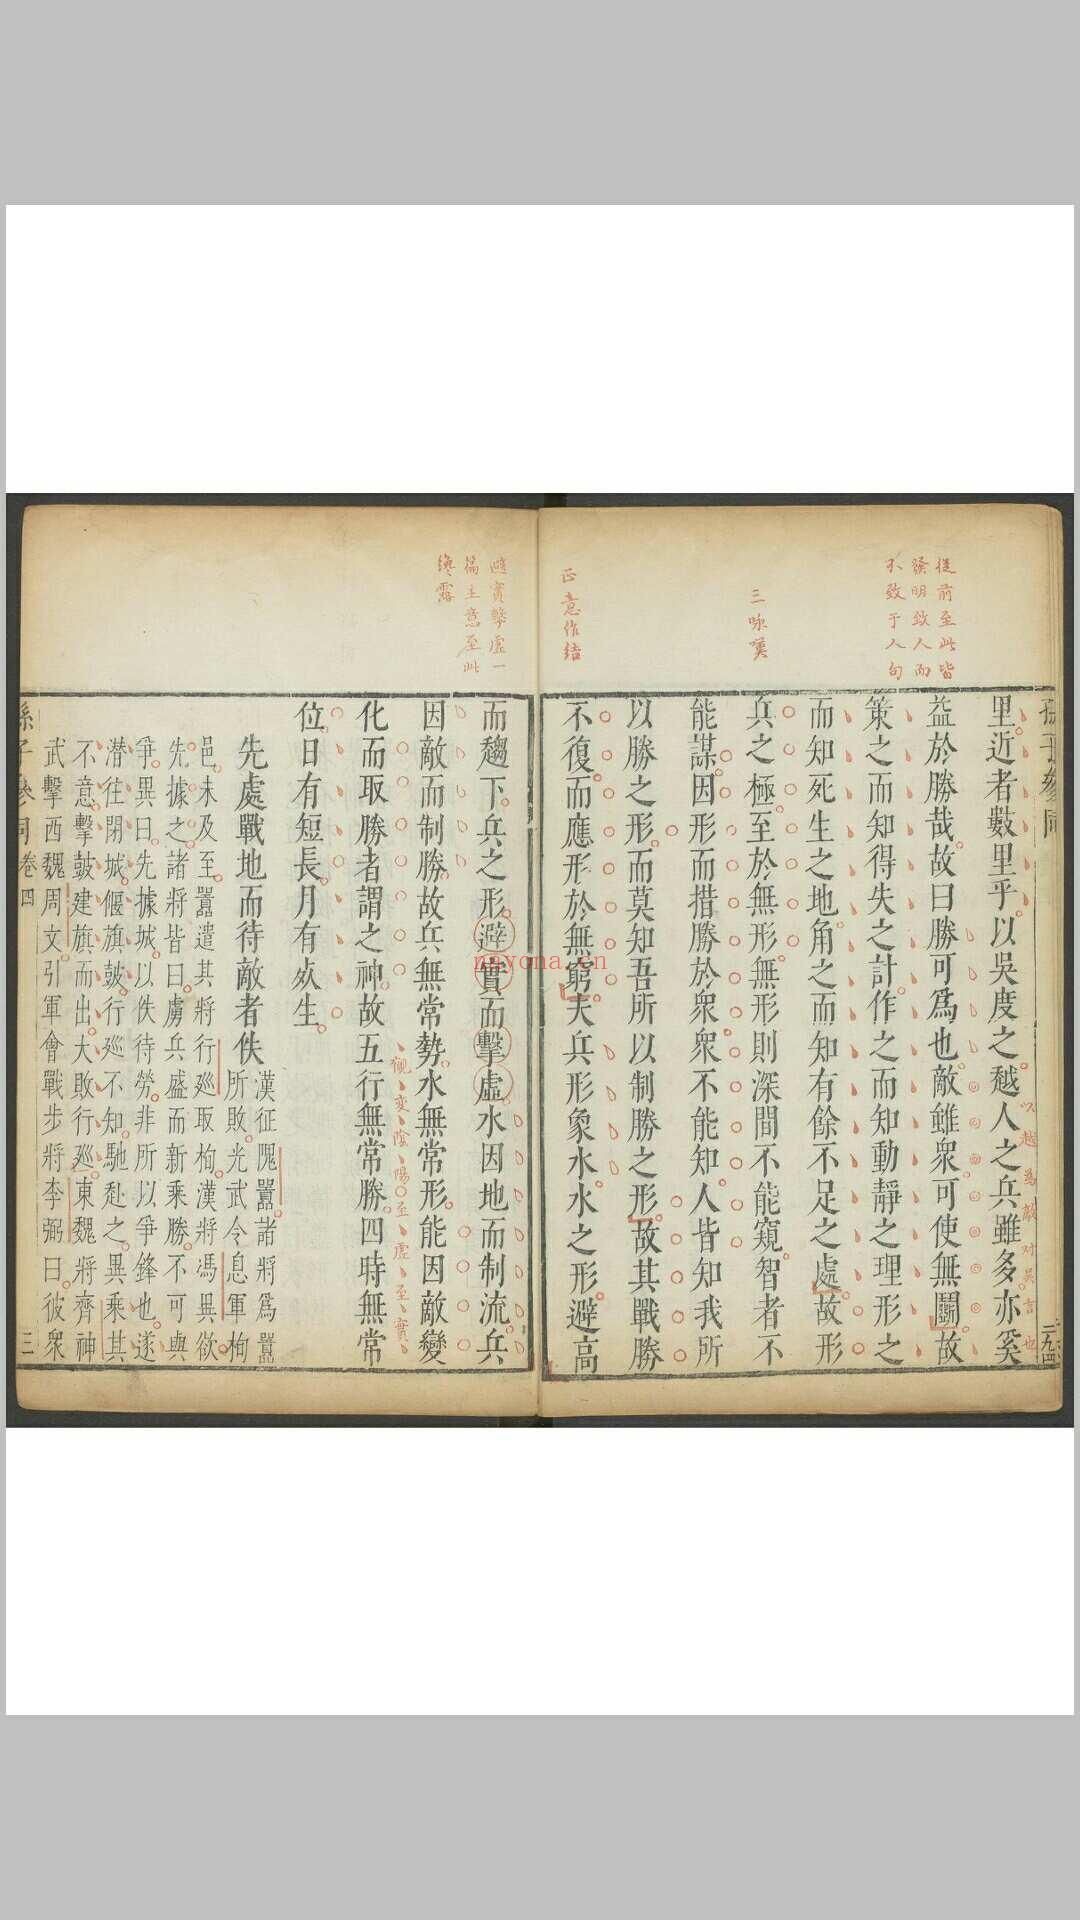 從前至此皆
發明致人而
不致于人句
三咏嘆
正意作結
里近者數里乎以吳度之越人之兵雖多亦奚
以越為敵对吳言也
益於勝哉故曰勝可爲也敵雖衆可使無鬭故
策之而知得失之計作之而知動靜之理形之
而知死生之地角之而知有餘不足之處故形
兵之極至於無形無形則深間不能窺智者不
能謀因形而措勝於衆衆不能知人皆知我所
以勝之形而莫知吾所以制勝之形故其戰勝
不復而應形於無窮夫兵形象水水之形避高
二九四
避實擊虛一
篇主意至此
纔露
而趨下兵之形避實而擊虛水因地而制流兵
因敵而制勝故兵無常勢水無常形能因敵變
觀變陰陽至虛至實
化而取勝者謂之神故五行無常勝四時無常
位日有短長月有死生
先處戰地而待敵者佚
漢征隗囂諸將爲囂
所敗光武令息軍栒
邑未及至囂遣其將行廵取栒漢將馮異欲
先據之諸將皆曰虜兵盛而新乘勝不可與
爭異曰先據城以佚待勞非所以爭鋒也遂
潛往閉城偃旗皷行廵不知馳赴之異乘其
不意擊皷建旗而出大敗行廵東魏將齊神
武擊西魏周文引軍會戰步將李弼曰彼衆
孫子參同卷四
三
nayona.cn